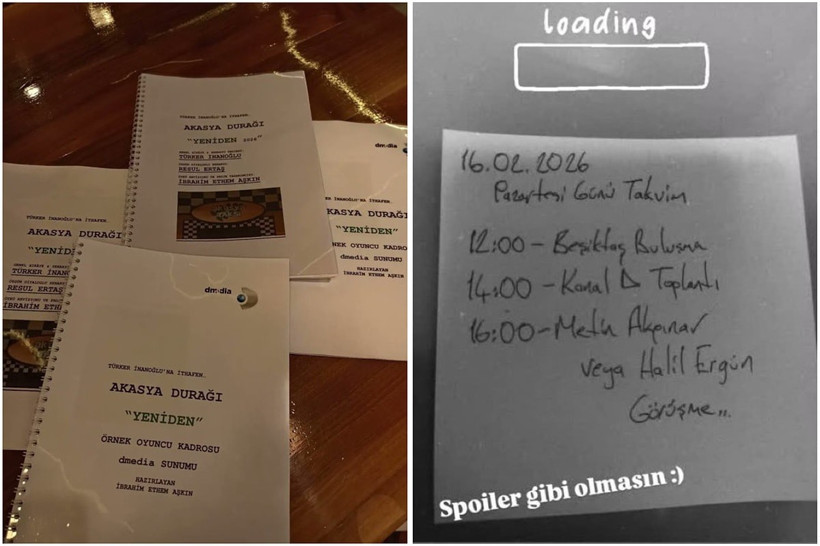 TÜRKER İNANOĞLU'NA İTHAFEN.
AKASYA DURAĞI
"YENİDEN 2026"
TÜRKER İNANOĞLU
RESUL ERTAŞ
İBRAHİM ETHEM AŞKIN
TÜRKER İNANOĞLU'NA İTHAFEN.
AKASYA DURAĞI
"YENİD
TÜRKER İNANO
RESUL ERTAŞ
İBRAHİM ETHEM
dmedia
KASYA DURAĞI
"YENİDEN"
NEK OYUNCU KADRO
dmedia SUNUMU
HAZIRLAYAN
İBRAHİM ETHEM AŞKIN
dmedia
TÜRKER İNANOĞLU'NA İTHAFEN.
AKASYA DURAĞI
"YENİDEN"
ÖRNEK OYUNCU KADROSU
dmedia SUNUMU
HAZIRLAYAN
İBRAHİM ETHEM AŞKIN
loading
16.02.2026
Pazartesi Günü Takvim
12:00 - Beşiktaş Buluşma
14:00 - Kanal D Toplantı
16:00 - Metin Akpınar
veya Halil Ergün
Görüşme...
Spoiler gibi olmasın :)